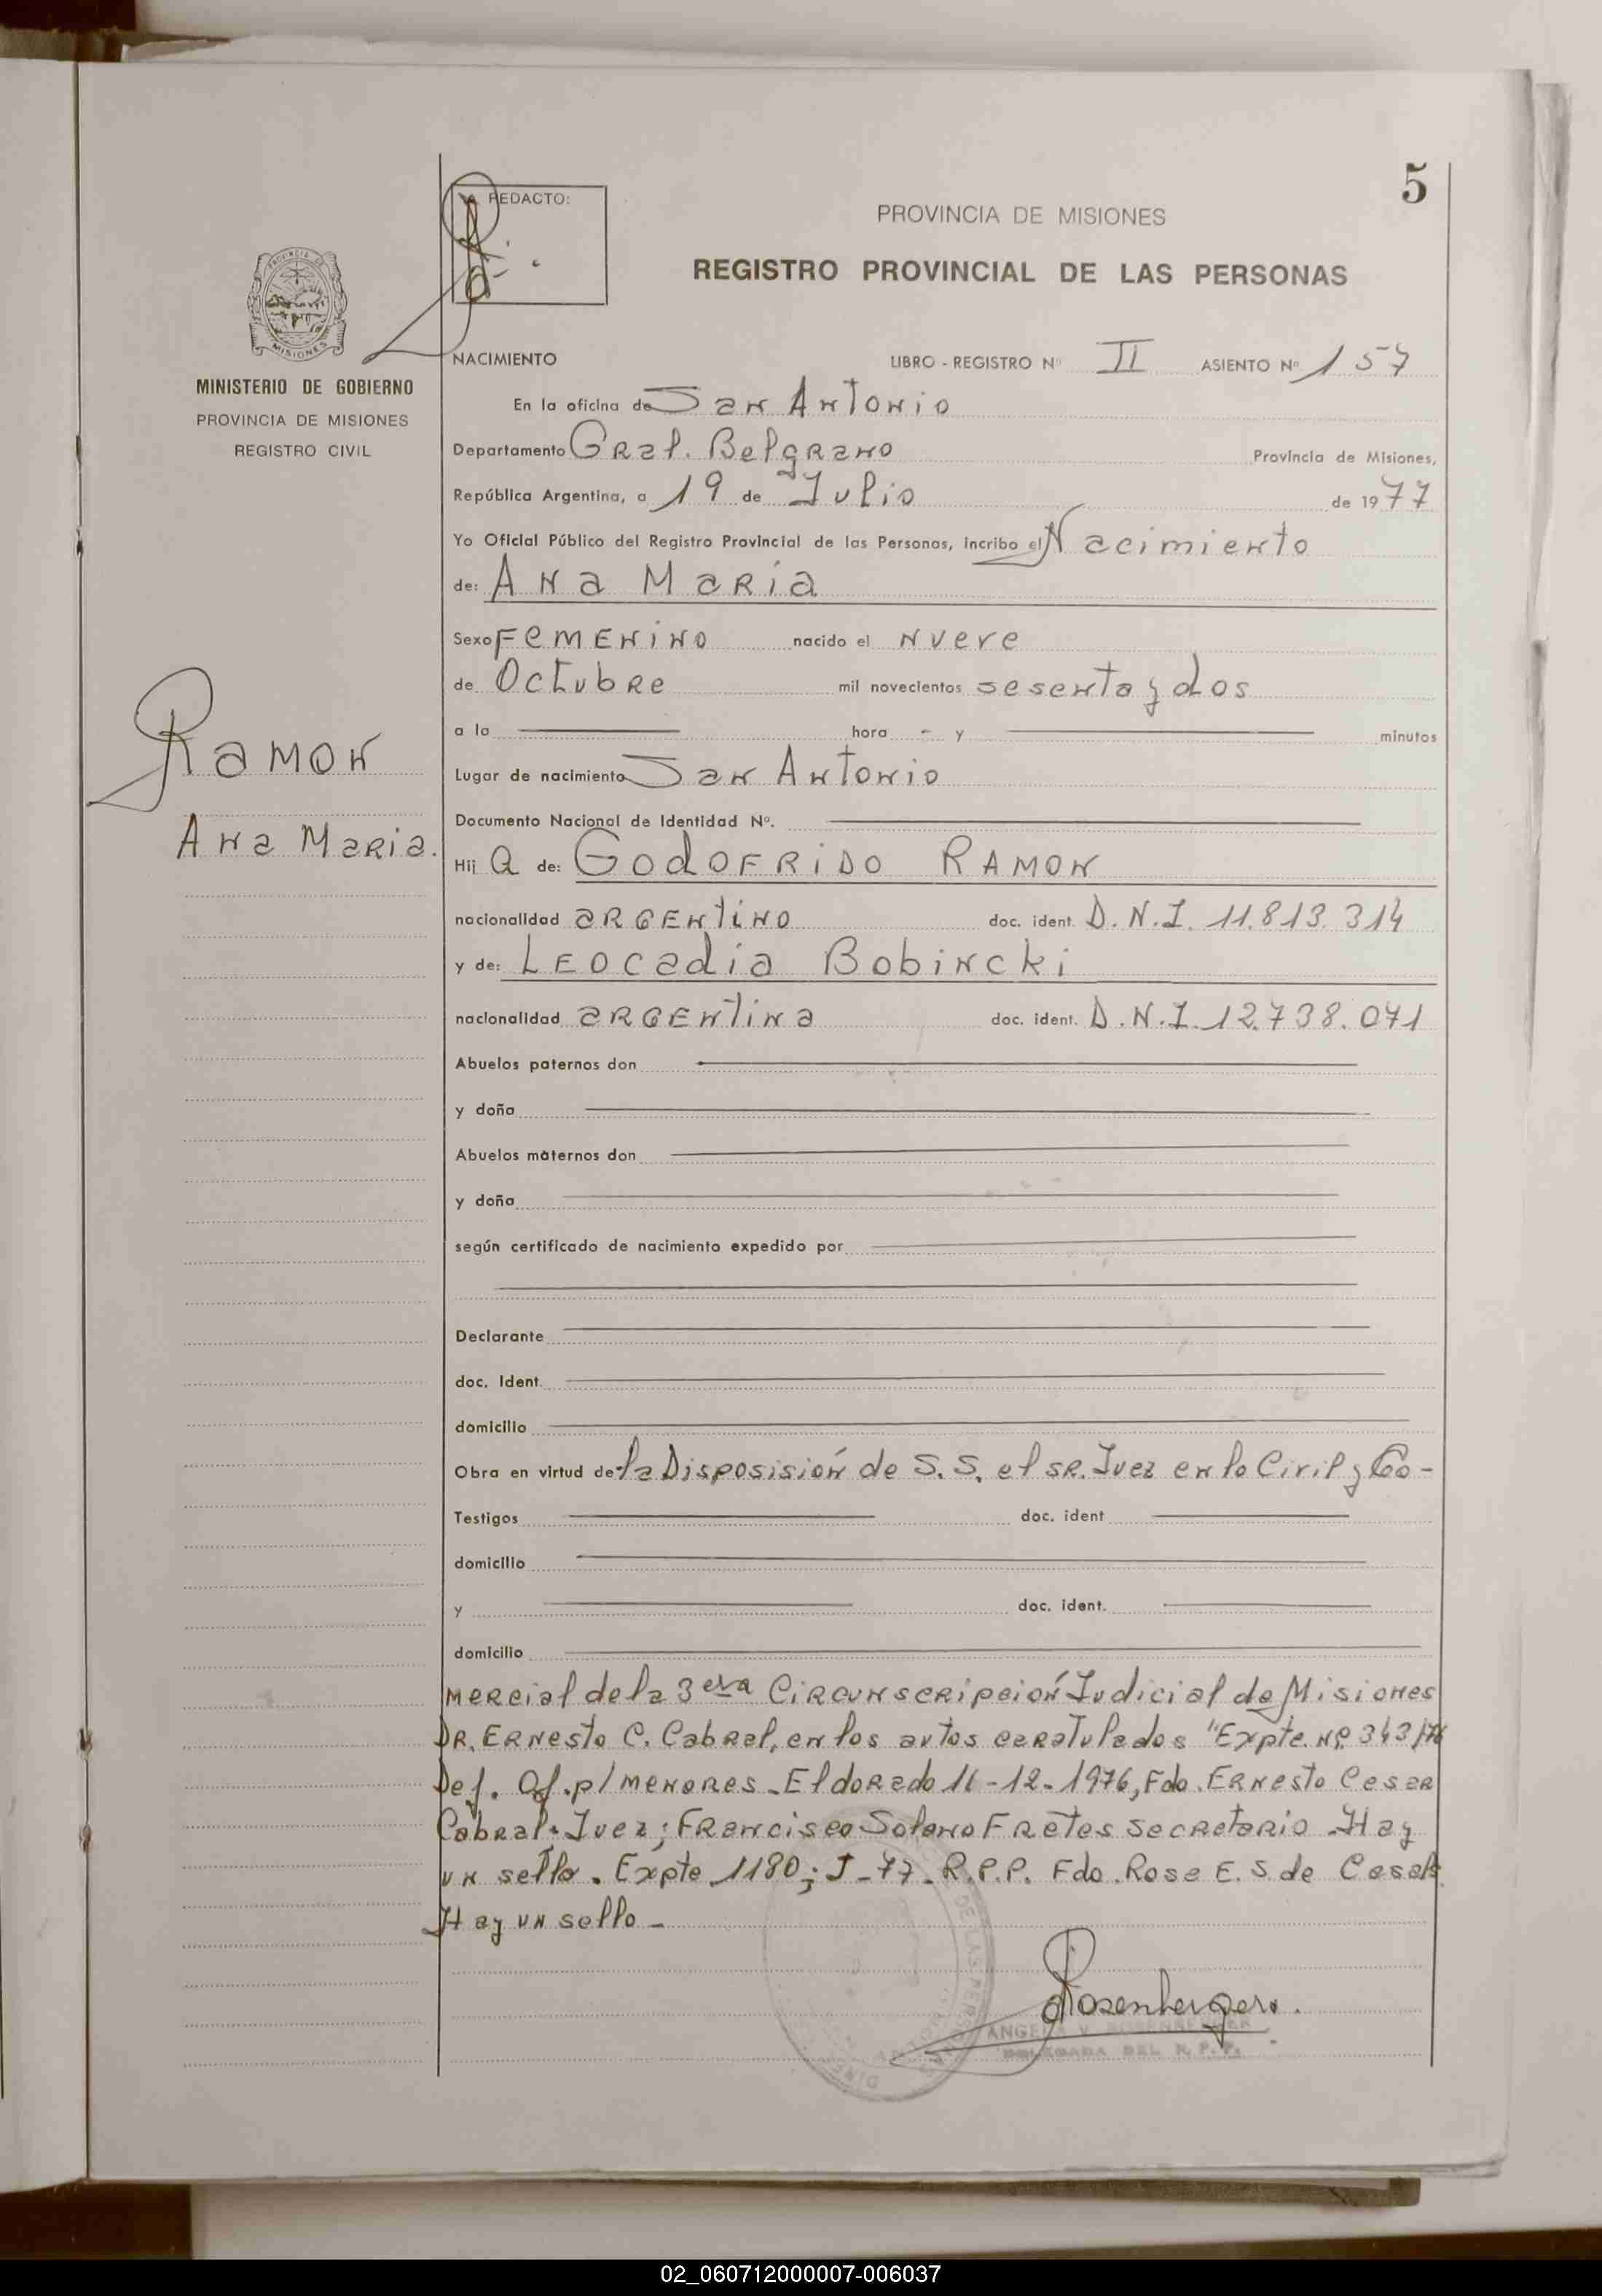 5
REDACTO:
PROVINCIA DE MISIONES
REGISTRO PROVINCIAL DE LAS PERSONAS
MISIONES
MINISTERIO DE GOBIERNO
PROVINCIA DE MISIONES
REGISTRO CIVIL
NACIMIENTO LIBRO - REGISTRO Nº II ASIENTO Nº 157
En la oficina de San Antonio
Departamento Gral. Belgrano Provincia de Misiones,
República Argentina, a 19 de Julio de 1977
Yo Oficial Público del Registro Provincial de las Personas, incribo el Nacimiento
de: Ana Maria
Sexo Femenino nacido el nueve
de Octubre mil novecientos sesenta y dos
a la hora - y minutos
Ramon
Lugar de nacimiento San Antonio
Documento Nacional de Identidad Nº.
Ana Maria.
Hij a de: Godofrido Ramon
nacionalidad argentino doc. ident. D.N.I. 11.813.314
y de: Leocadia Bobincki
nacionalidad argentina doc. ident. D.N.I. 12.738.071
Abuelos paternos don
y doña
Abuelos maternos don
y doña
según certificado de nacimiento expedido por
Declarante
doc. Ident.
domicilio
Obra en virtud de la Disposisión de S.S. el Sr. Juez en lo Civil y Co-
Testigos doc. ident
domicilio
y doc. ident.
domicilio
mercial de la 3era Circunscripción Judicial de Misiones
Dr. Ernesto C. Cabral, en los autos caratulados "Expte. Nº 343/76
Def. Of. p/menores - Eldorado 16-12-1976, Fdo. Ernesto Cesar
Cabral. Juez; Francisco Solano Fretes Secretario. Hay
un sello. Expte 1180; J-77. R.P.P. Fdo. Rosa E. S. de Casals
Hay un sello -
Rosenberger.
ANGELA V. ROSENBERGER
DELEGADA DEL R.P.P.
02_060712000007-006037